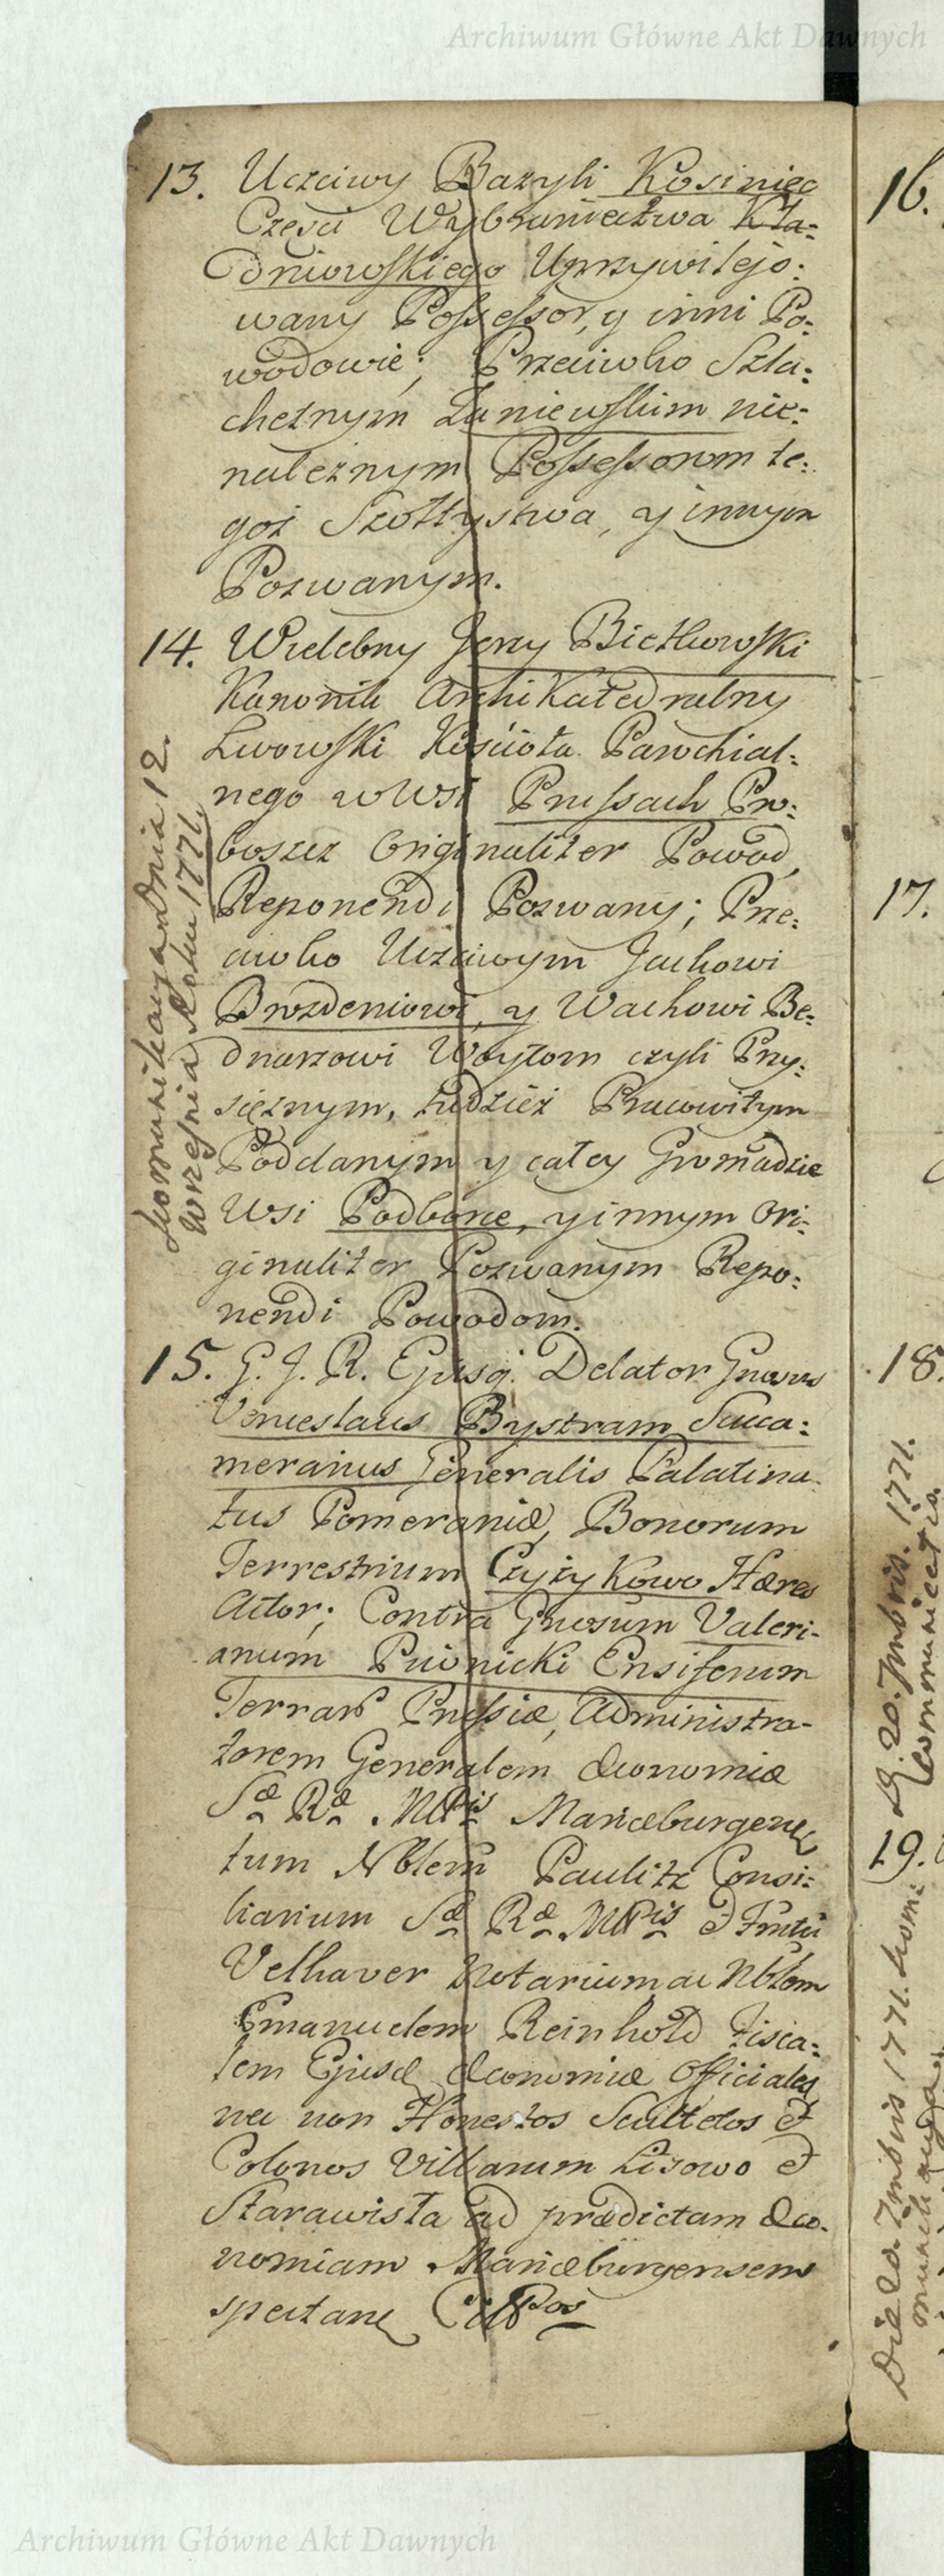 Archiwum Główne Akt Dawnych
13. Uczciwy Bazyli Kosiniec
Częsci Wybraniectwa Kła=
dniowskiego Uprzywilejo=
wany Possessor, y inni Po=
wodowie; Przeciwko Szla=
chetnym Łaniewskim nie=
należnym Possessorom te=
goż Szołtystwa, y innym
Pozwanym.
14. Wielebny Jerzy Bietkowski
Kanonik Archikatedralny
Lwowski Kościoła Parochial=
nego w Wsi Prussach Pro=
boszcz Originaliter Powod
Reponendi Pozwany; Prze=
ciwko Uczciwym Jackowi
Brozdeniowi, y Wackowi Be=
dnarzowi Woytom czyli Przy=
siężnym, tudzież Pracowitym
Poddanym y całey Gromadzie
Wsi Podborce, y innym Ori=
ginaliter Pozwanym Repo=
nendi Powodom.
Komunikacya Dnia 12.
Września Roku 1771.
15. G. J. R. Ejusq. Delator Gnosus
Venceslaus Bystram Succa=
merarius Generalis Palatina
tus Pomeraniæ, Bonorum
Terrestrium Czyżykowo Hæres
Actor; Contra Gnosum Valeri-
anum Piwnicki Ensiferum
Terrar Prussiæ, Administra-
torem Generalem Œconomiæ
Sæ Ræ Mttis Mariæburgen
tum Nblem Paulitz Consi=
liarium Sæ Ræ Mttis
Velhaver Notarium ac Nblem
Emanuelem Reinhold Fisca=
lem Ejusd Œconomiæ Officiales
nec non Honestos Scultetos &
Colonos Villarum Lisowo &
Starawista ad prædictam Œco-
nomiam Mariæburgensem
spectan
16.
17.
18.
D. 20. 7mbris. 1771.
Communicatio
19.
Die 20. 7mbris 1771. kom:
Archiwum Główne Akt Dawnych